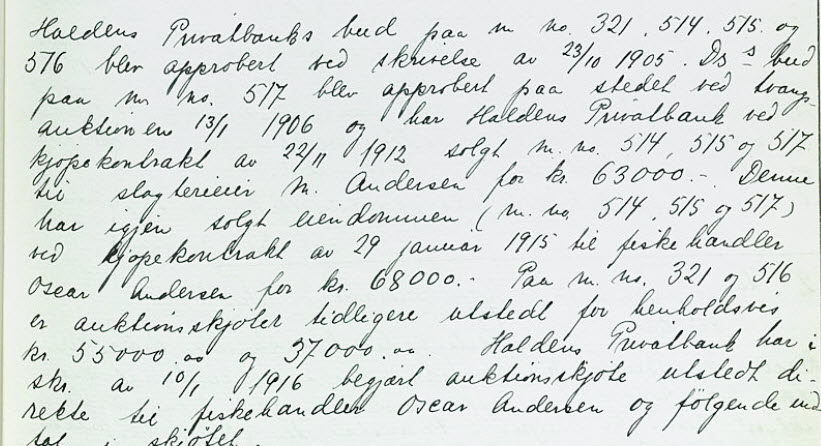 Haldens Privatbanks bud paa m. no. 321, 514, 515 og
516 blev approbert ved skrivelse av 23/10 1905. Ds s bud
paa m. no. 517 blev approbert paa stedet ved tvangs-
auktionen 13/1 1906 og har Haldens Privatbank ved
kjøpekontrakt av 22/11 1912 solgt m. no. 514, 515 og 517
til slagterieier M. Andersen for kr. 63000.-. Denne
har igjen solgt eiendommen (m. no. 514, 515 og 517)
ved kjøpekontrakt av 29 januar 1915 til fiskehandler
Oscar Andersen for kr. 68000.- Paa m. no. 321 og 516
er auktionsskjøter tidligere utstedt for henholdsvis
kr. 55000.00 og 37000.00. Haldens Privatbank har i
skr. av 10/1 1916 begjært auktionsskjøte utstedt di-
rekte til fiskehandler Oscar Andersen og følgende ind
i skjøtet.